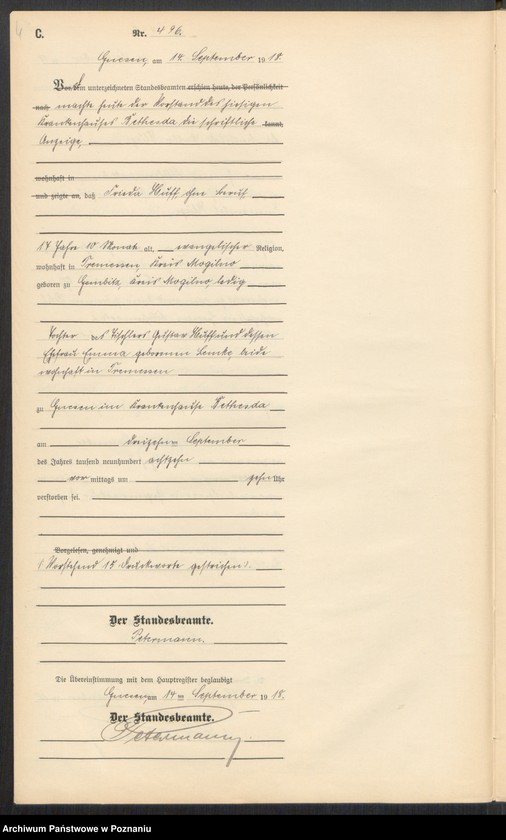 C. Nr. 496.
Gnesen, am 14. September 1918.
Vor dem unterzeichneten Standesbeamten erschien heute, der Persönlichkeit
nach machte heute der Vorstand des hiesigen
Krankenhauses Bethesda die schriftliche kannt,
Anzeige,
wohnhaft in
und zeigte an, daß Frieda ohne Beruf,
Jahre 10 Monate alt, evangelischer Religion,
wohnhaft in Tremessen, Kreis Mogilno
geboren zu Gembitz, Kreis Mogilno, ledig
Tochter des Tischlers Gustav und dessen
Ehefrau Emma geborenen Lemke, beide
wohnhaft in Tremessen
zu Gnesen im Krankenhause Bethesda
am dreizehn September
des Jahres tausend neunhundert achtzehn
vor mittags um zehn Uhr
verstorben sei.
Vorgelesen, genehmigt und
(Vorstehend 15 Druckworte gestrichen).
Der Standesbeamte.
Petermann.
Die Übereinstimmung mit dem Hauptregister beglaubigt
Gnesen, am 14ten September 1918.
Der Standesbeamte.
Petermann
Archiwum Państwowe w Poznaniu